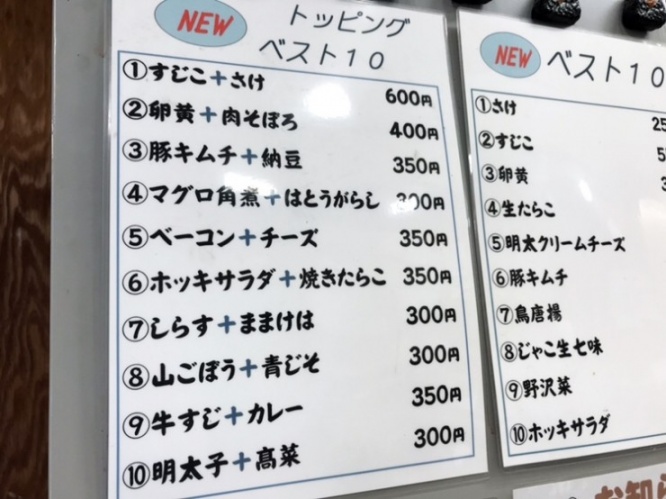 NEW
トッピング
ベスト10
①すじこ+さけ 600円
②卵黄+肉そぼろ 400円
③豚キムチ+納豆 350円
④マグロ角煮+はとうがらし 300円
⑤ベーコン+チーズ 350円
⑥ホッキサラダ+焼きたらこ 350円
⑦しらす+ままけは 300円
⑧山ごぼう+青じそ 300円
⑨牛すじ+カレー 350円
⑩明太子+高菜 300円
NEW
ベスト10
①さけ
②すじこ
③卵黄
④生たらこ
⑤明太クリームチーズ
⑥豚キムチ
⑦鳥唐揚
⑧じゃこ生七味
⑨野沢菜
⑩ホッキサラダ